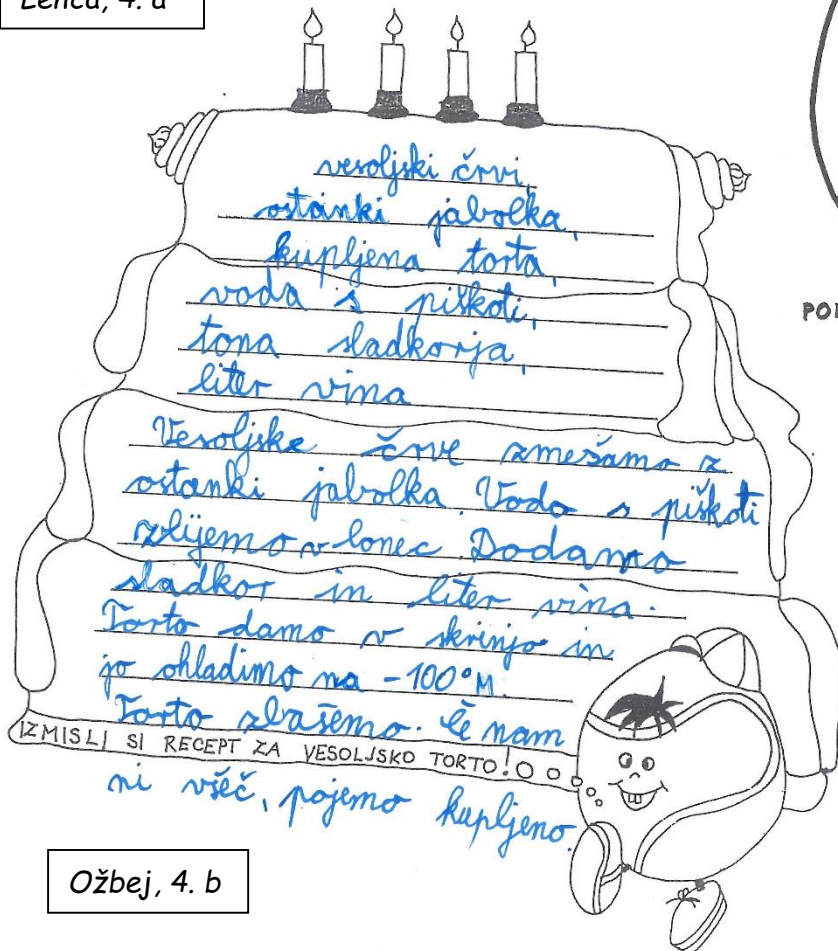 Lenča, 4. a
vesoljski črvi,
ostanki jabolka,
kupljena torta,
voda s piškoti,
tona sladkorja,
liter vina
Vesoljske črve zmešamo z
ostanki jabolka. Vodo s piškoti
zlijemo v lonec. Dodamo
sladkor in liter vina.
Torto damo v skrinjo in
jo ohladimo na -100°M.
Torto zbašemo. Če nam
IZMISLI SI RECEPT ZA VESOLJSKO TORTO!
ni všeč, pojemo kupljeno.
Ožbej, 4. b